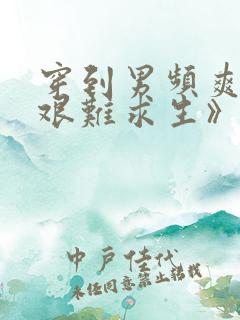 穿到男頻爽
艱難求生》
中戶佳代
未经同意禁止转载